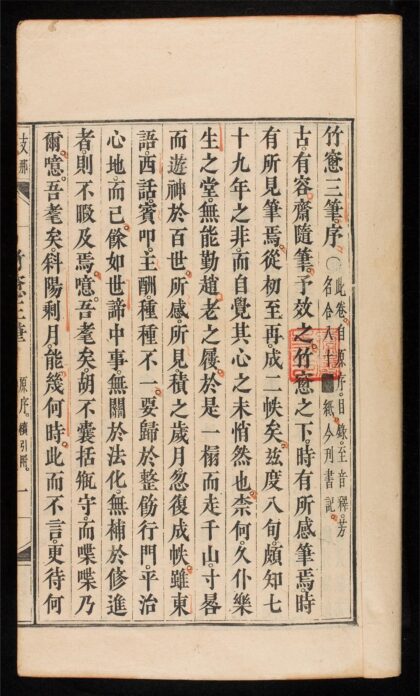 竹窓三筆序
此卷自原序目錄至音釋芳
名合八十
紙今刊書記
古有容齋隨筆予效之竹窓之下時有所感筆焉時
有所見筆焉從初至再成二帙矣玆度八旬頗知七
十九年之非而自覺其心之未悄然也柰何久仆樂
生之堂無能勤趙老之屨於是一榻而走千山寸晷
而遊神於百世所感所見積之歲月忽復成帙雖東
語西話賓叩主酬種種不一要歸於整飭行門平治
心地而已餘如世諦中事無關於法化無補於修進
者則不暇及焉噫吾耄矣胡不囊括甁守而喋喋乃
爾噫吾耄矣斜陽剩月能幾何時此而不言更待何
支那
竹窓三筆
原序
一